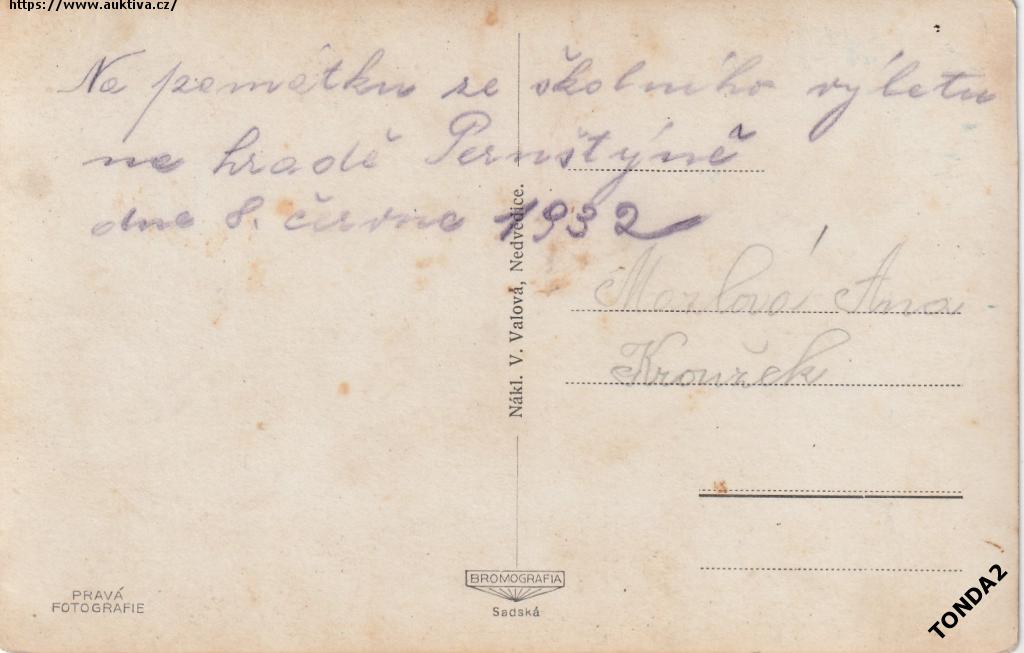 https://www.auktiva.cz/
Na památku ze školního výletu
na hradě Pernštýně
dne 8. června 1932
Nákl. V. Valová, Nedvědice.
Marlová Ana
Kroužek
PRAVÁ
FOTOGRAFIE
BROMOGRAFIA
Sadská
TONDA2